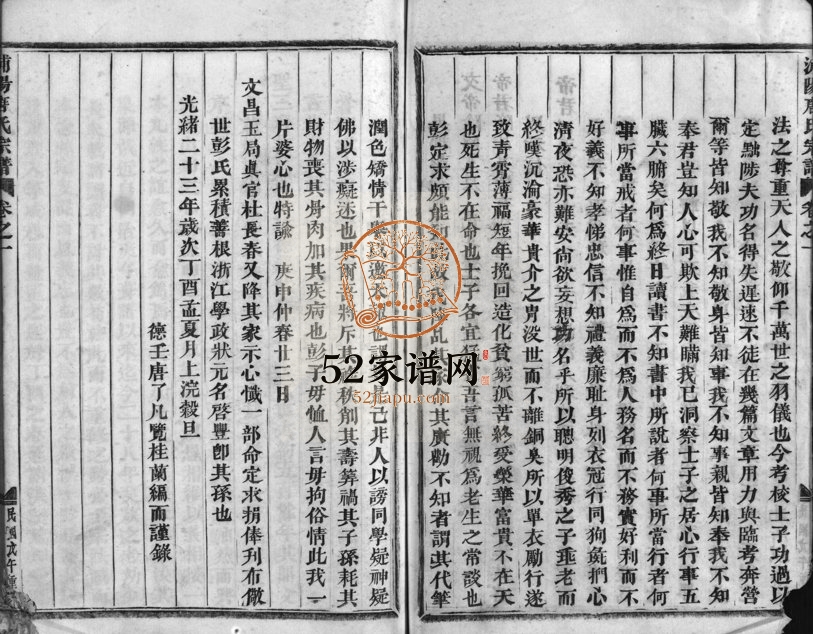 法之尊重天人之敬仰千萬世之羽儀也今考校士子功過以
定黜陟夫功名得失遲速不徒在幾篇文章用力與臨考奔營
爾等皆知敬我不知敬身皆知事我不知事親皆知奉我不知
奉君豈知人心可欺上天難瞞我已洞察士子之居心行事五
臟六腑矣何爲終日讀書不知書中所說者何事所當行者何
事所當戒者何事惟自爲而不爲人務名而不務實好利而不
好義不知孝悌忠信不知禮義廉耻身列衣冠行同狗彘捫心
清夜恐亦難安尙欲妄想功名乎所以聰明俊秀之子垂老而
終嘆沉淪豪華貴介之胄沒世而不離銅臭所以單衣勵行遂
致青霄薄福短年挽回造化貧窮孤苦終受榮華富貴不在天
也死生不在命也士子各宜 吾言無視爲老生之常談也
彭定求頗能 其廣勸不知者謂其代筆
潤色矯情干 己非人以謗同學疑神疑
佛以涉癡迷也 將斥其 秩削其壽算禍其子孫耗其
財物喪其骨肉加其疾病也彭子毋恤人言毋拘俗情此我一
片婆心也特諭 庚申仲春廿三日
文昌玉局眞官杜長春又降其家示心懺一部命定求捐俸刋布儆
世彭氏累積善根浙江學政狀元名啓豐卽其孫也
光緒二十三年歲次丁酉孟夏月上浣穀旦
德壬唐了凡覽桂蘭編而謹錄
浦陽唐氏宗譜
卷之一
民國戊午重
52家谱网
52jiapu.com